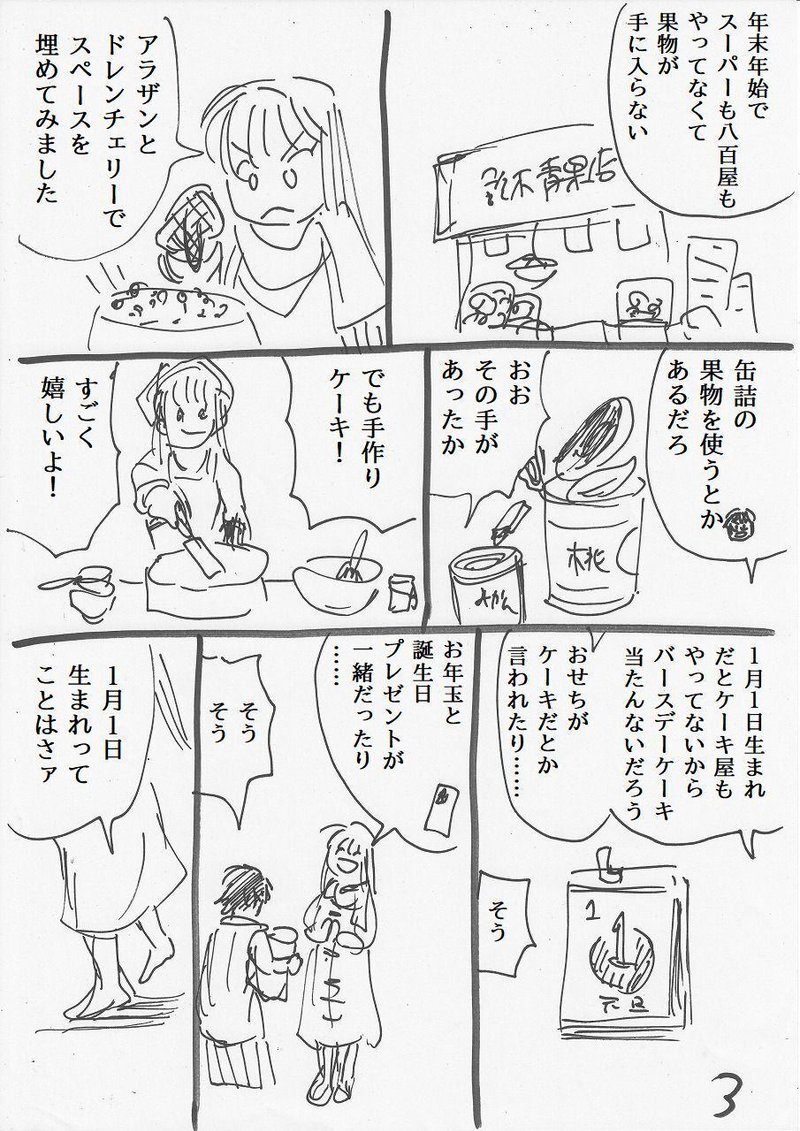 年末年始で
スーパーも八百屋も
やってなくて
果物が
手に入らない
青果店
アラザンと
ドレンチェリーで
スペースを
埋めてみました
缶詰の
果物を使うとか
あるだろ
桃
みかん
おお
その手が
あったか
でも手作り
ケーキ！
すごく
嬉しいよ！
１月１日生まれ
だとケーキ屋も
やってないから
バースデーケーキ
当たんないだろう
おせちが
ケーキだとか
言われたり……
そう
1
1
元旦
お年玉と
誕生日
プレゼントが
一緒だったり
……
そう
そう
１月１日
生まれって
ことはさァ
3